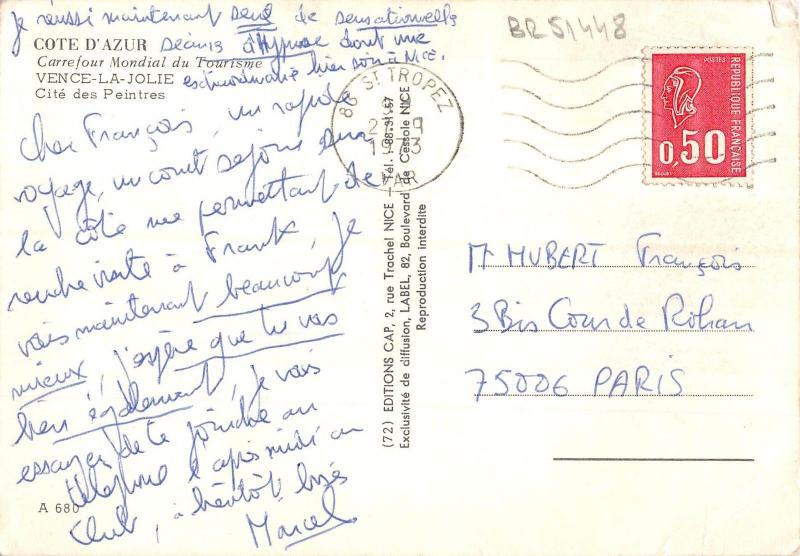 je réussi maintenant seul de sensationnells
séances d'Hypnose dont une
extraordinaire hier soir à NICE.
COTE D'AZUR
Carrefour Mondial du Tourisme
VENCE-LA-JOLIE
Cité des Peintres
Cher François, un rapide
voyage, un court séjour sur
la côte me permettant de
rendre visite à Frank, Je
vais maintenant beaucoup
mieux, j'espère que tu vas
bien également, je vais
essayer de te joindre au
téléphone l'après midi au
Club, à bientôt bises
Marcel
A 680
(72) EDITIONS CAP, 2, rue Trachel NICE - Tél. 88.91.57
Exclusivité de diffusion, LABEL, 82, Boulevard de Cessole NICE
Reproduction interdite
BR51448
ST TROPEZ
POSTES
REPUBLIQUE FRANÇAISE
0,50
Mr HUBERT François
3 Bis Cour de Rohan
75006 PARIS